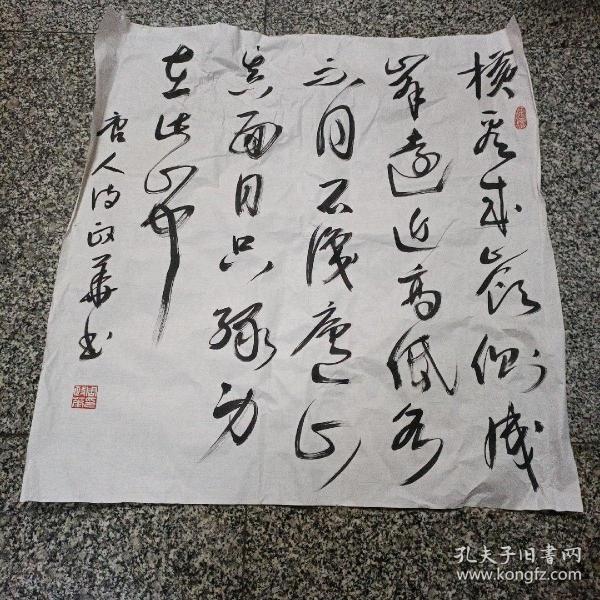 横看成嶺側成
峯遠近高低各
不同不識廬山
真面目只緣身
在此山中
唐人诗政華书
孔夫子旧书网
www.kongfz.com